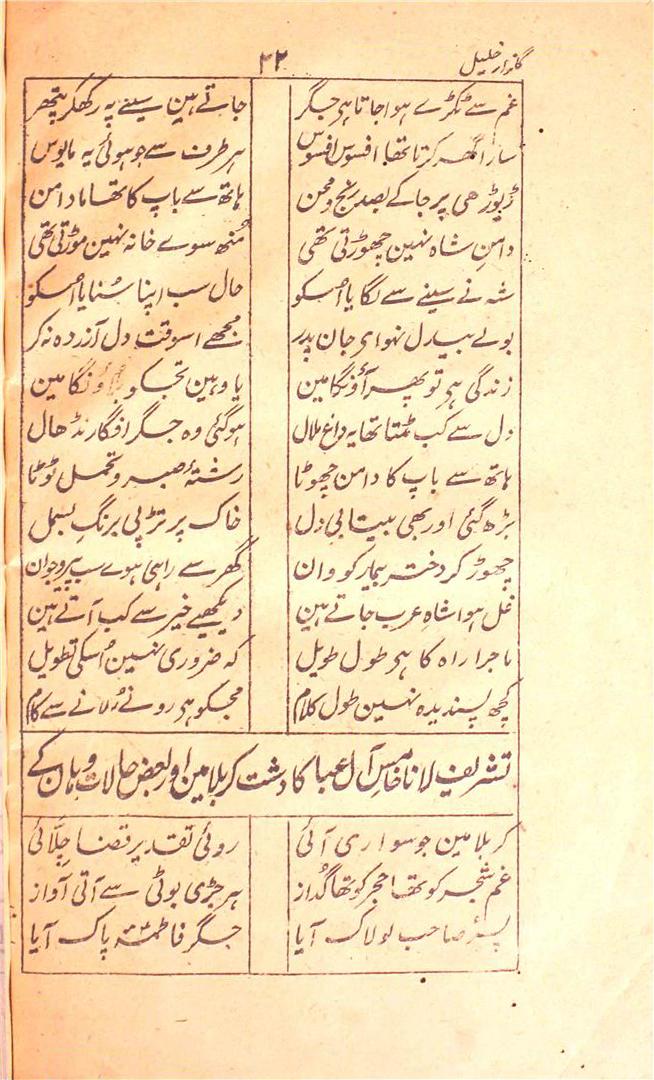 گلزار خلیل ۴۲
غم سے ٹکڑے ہوا جاتا ہی جگر جاتے ہین سینے پہ رکھکر پتھر
سارا گھر کرتا تھا افسوس افسوس ہر طرف سے جو ہوئی یہ مایوس
ڈیوڑھی پر جاکے بصد رنج و محن ہاتھ سے باپ کا تھاما دامن
دامنِ شاہ نہین چھوڑتی تھی مُنھ سوے خانہ نہین موڑتی تھی
شہ نے سینے سے لگایا اُسکو حال سب اپنا سُنایا اُسکو
بولے بیدل نہو ای جان پدر مجھے اسوقت دل آزردہ نہ کر
زندگی ہی تو پھر آؤنگا مین یا وہین تجکو بلاؤنگا مین
دل سے کب مٹتا تھا یہ داغ ملال ہوگئی وہ جگر افگار نڈھال
ہاتھ سے باپ کا دامن چھوٹا رشتۂ صبر و تحمل ٹوٹا
بڑھ گئی اور بھی بیتابی دل خاک پر تڑپی برنگِ بسمل
چھوڑ کر دختر بیمار کو وان گھر سے راہی ہوے سب پیر و جوان
غل ہوا شاہِ عرب جاتے ہین دیکھیے خیر سے کب آتے ہین
ماجرا راہ کا ہی طول طویل کہ ضروری نہین اُسکی تطویل
کچھ پسندیدہ نہین طول کلام مجکو ہی رونے رُلانے سے کام
تشریف لانا خامس آل عبا کا دشت کربلا مین اور بعض حالات وہان کے
کربلا مین جو سواری آئی روئی تقدیر قضا چلّائی
غم شجر کو تھا حجر کو تھا گداز ہر جڑی بوٹی سے آتی آواز
پسر صاحب لولاک آیا جگر فاطمہ پاک آیا